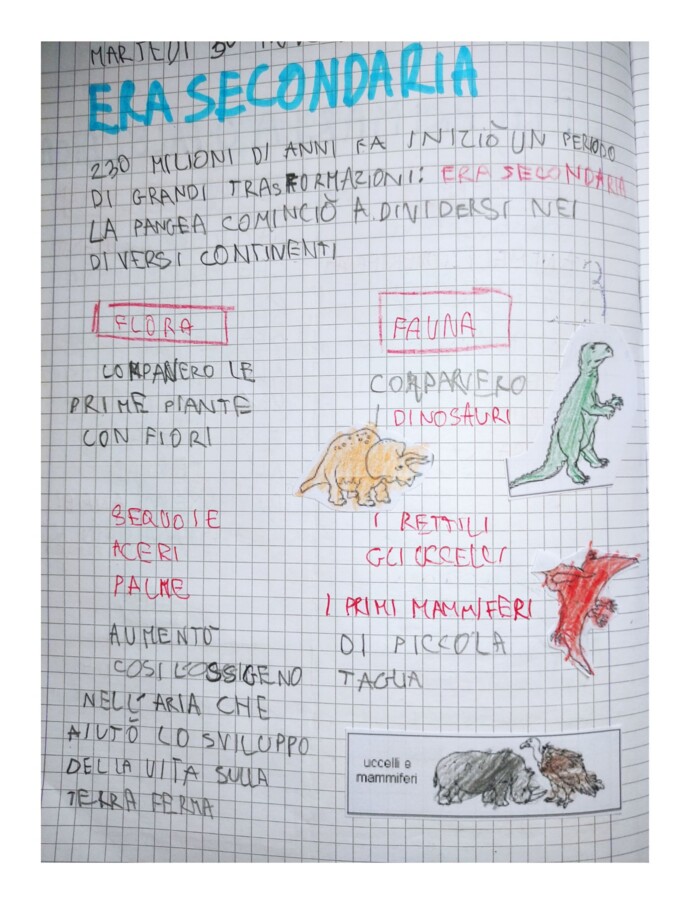 MARTEDÌ 30
ERA SECONDARIA
230 MILIONI DI ANNI FA INIZIÒ UN PERIODO
DI GRANDI TRASFORMAZIONI: ERA SECONDARIA
LA PANGEA COMINCIÒ A DIVIDERSI NEI
DIVERSI CONTINENTI
FLORA
COMPARVERO LE
PRIME PIANTE
CON FIORI
SEQUOIE
ACERI
PALME
AUMENTÒ
COSÌ L'OSSIGENO
NELL'ARIA CHE
AIUTÒ LO SVILUPPO
DELLA VITA SULLA
TERRA FERMA
FAUNA
COMPARVERO
I DINOSAURI
I RETTILI
GLI UCCELLI
I PRIMI MAMMIFERI
DI PICCOLA
TAGLIA
uccelli e
mammiferi